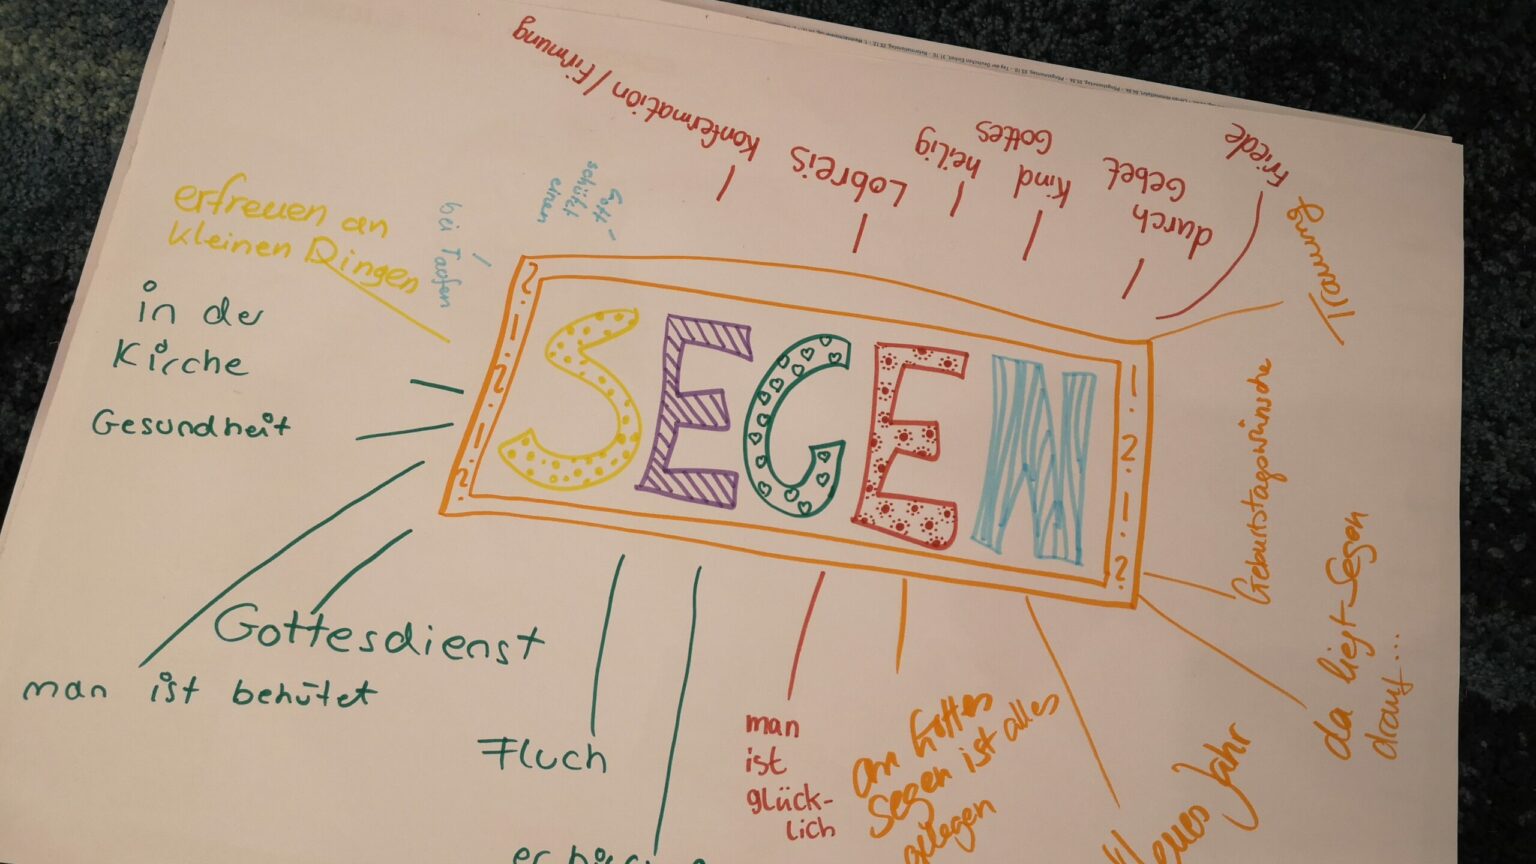 Konfermation / Firmung
Lobreis
heilig
Kind
Gottes
durch
Gebet
Friede
Trauung
erfreuen an
kleinen Dingen
bei Taufen
Gott
schützt
einen
in der
Kirche
Gesundheit
SEGEN
Geburtstagswünsche
da liegt Segen
drauf...
Gottesdienst
man ist behütet
Fluch
man
ist
glück-
lich
an Gottes
Segen ist alles
gelegen
Neues Jahr